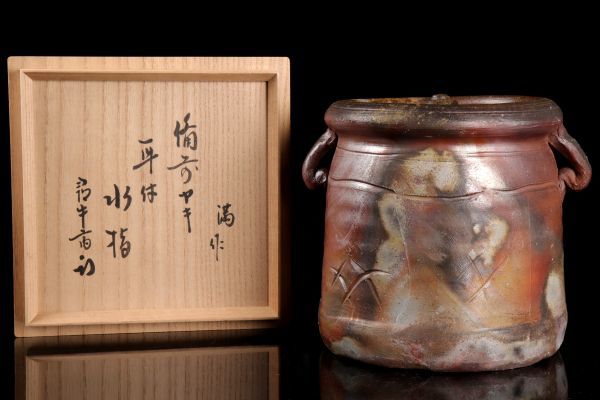 満作
備前ヤキ
耳付
水指